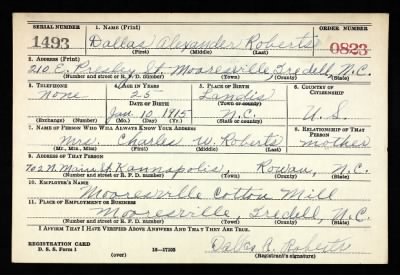 SERIAL NUMBER 1. NAME (Print) ORDER NUMBER
1493 Dallas Alexander Roberts 0823
(First) (Middle) (Last)
2. ADDRESS (Print)
210 E. Presby St. Mooresville, Iredell, N.C.
(Number and street or R. F. D. number) (Town) (County) (State)
3. TELEPHONE 4. AGE IN YEARS 5. PLACE OF BIRTH 6. COUNTRY OF CITIZENSHIP
None 25 Landis
DATE OF BIRTH (Town or county)
Jan. 10, 1915 N.C. U.S.
(Exchange) (Number) (Mo.) (Day) (Yr.) (State or country)
7. NAME OF PERSON WHO WILL ALWAYS KNOW YOUR ADDRESS 8. RELATIONSHIP OF THAT PERSON
Mrs. Charles W. Roberts mother
(Mr., Mrs., Miss) (First) (Middle) (Last)
9. ADDRESS OF THAT PERSON
702 N. Main St. Kannapolis, Rowan, N.C.
(Number and street or R. F. D. number) (Town) (County) (State)
10. EMPLOYER'S NAME
Mooresville Cotton Mill
11. PLACE OF EMPLOYMENT OR BUSINESS
Mooresville, Iredell, N.C.
(Number and street or R. F. D. number) (Town) (County) (State)
I AFFIRM THAT I HAVE VERIFIED ABOVE ANSWERS AND THAT THEY ARE TRUE.
REGISTRATION CARD
D. S. S. Form 1 16—17105 Dallas A. Roberts
(over) (Registrant's signature)